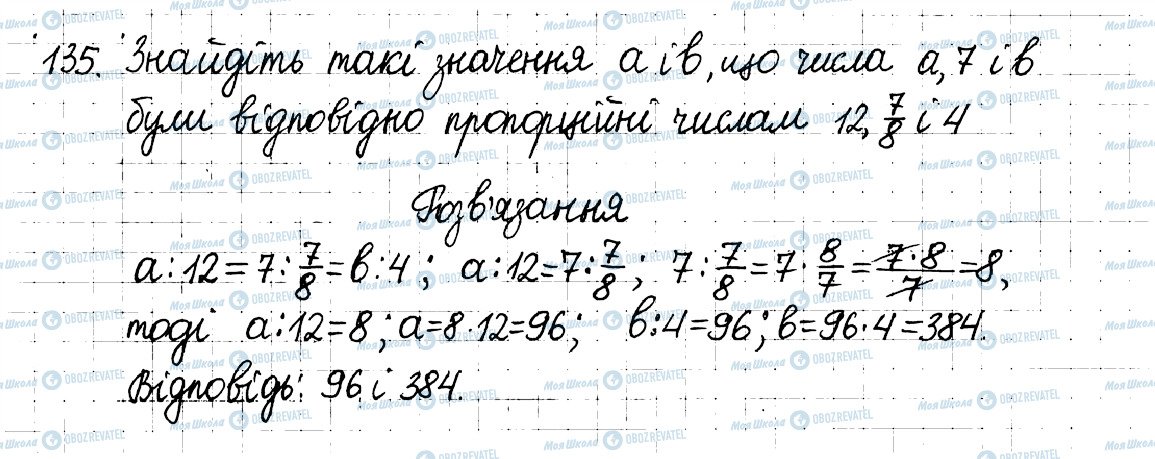 135. Знайдіть такі значення a і b, що числа a, 7 і b
були відповідно пропорційні числам 12, 7/8 і 4
Розв'язання
a : 12 = 7 : 7/8 = b : 4 ; a : 12 = 7 : 7/8 ; 7 : 7/8 = 7 · 8/7 = 7·8/7 = 8,
тоді a : 12 = 8 ; a = 8 · 12 = 96 ; b : 4 = 96 ; b = 96 · 4 = 384.
Відповідь: 96 і 384.